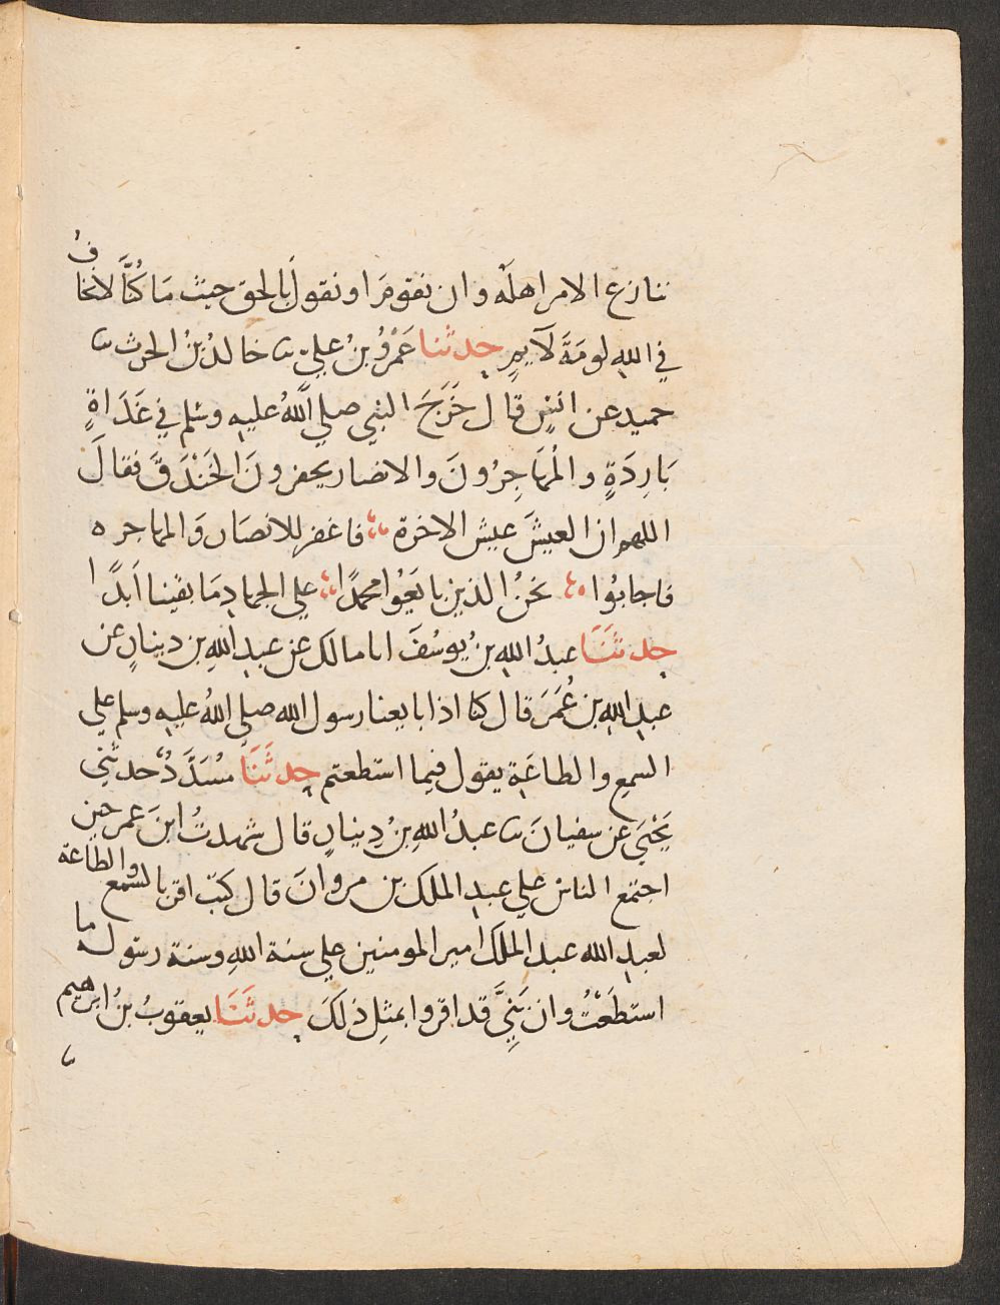 ننازع الامر اهلَه وان نقومَ او نقولَ بالحق حيث مَا كُنَّا لانخافُ
في الله لومَةَ لَايمٍ حدثنا عَمْرُو بنُ عليّ ثنا خالدُ بنُ الحرث ثنا
حميد عن انسٍ قال خَرَجَ النبي صلي اللَّهُ عليهِ وسَلم في غَدَاةٍ
بَارِدَةٍ والمُهَاجِرُونَ والانصار يحفرونَ الخَنْدَقَ فقالَ
اللهم ان العيشَ عيش الاخرة فاغفر للانصَار وَالمهاجره
فاجابُوا نحنُ الذين بايَعُوا محمدًا علي الجهادِ مَا بقينا اَبدًا
حدثَنَا عبدُ الله بنُ يوسُفَ انا مالك عن عبدِ اللهِ بن دينارٍ عن
عبدِ اللهِ بن عُمَرَ قال كنا اذا بايعنا رسول الله صلي اللهُ عليه وسلم علي
السمعِ والطاعَةِ يقول فيما استطعتم حدثَنَا مُسَدَّدٌ حدثني
يَحْيَي عن سفيانَ ثنا عبدُ اللهِ بنُ دِينارٍ قال شهدتُ ابنَ عمر حين
اجتمع الناس علي عبدِ الملك بن مروانَ قال كتب اقر بالسمع والطاعة
لعبدِ الله عبد الملك امير المومنين علي سنة اللهِ وسنة رسوله ما
استطَعْتُ وان بَنِيَّ قد اقروا بمثلِ ذلكَ حدثَنَا يعقوبُ بنُ ابرهيم
ثنا